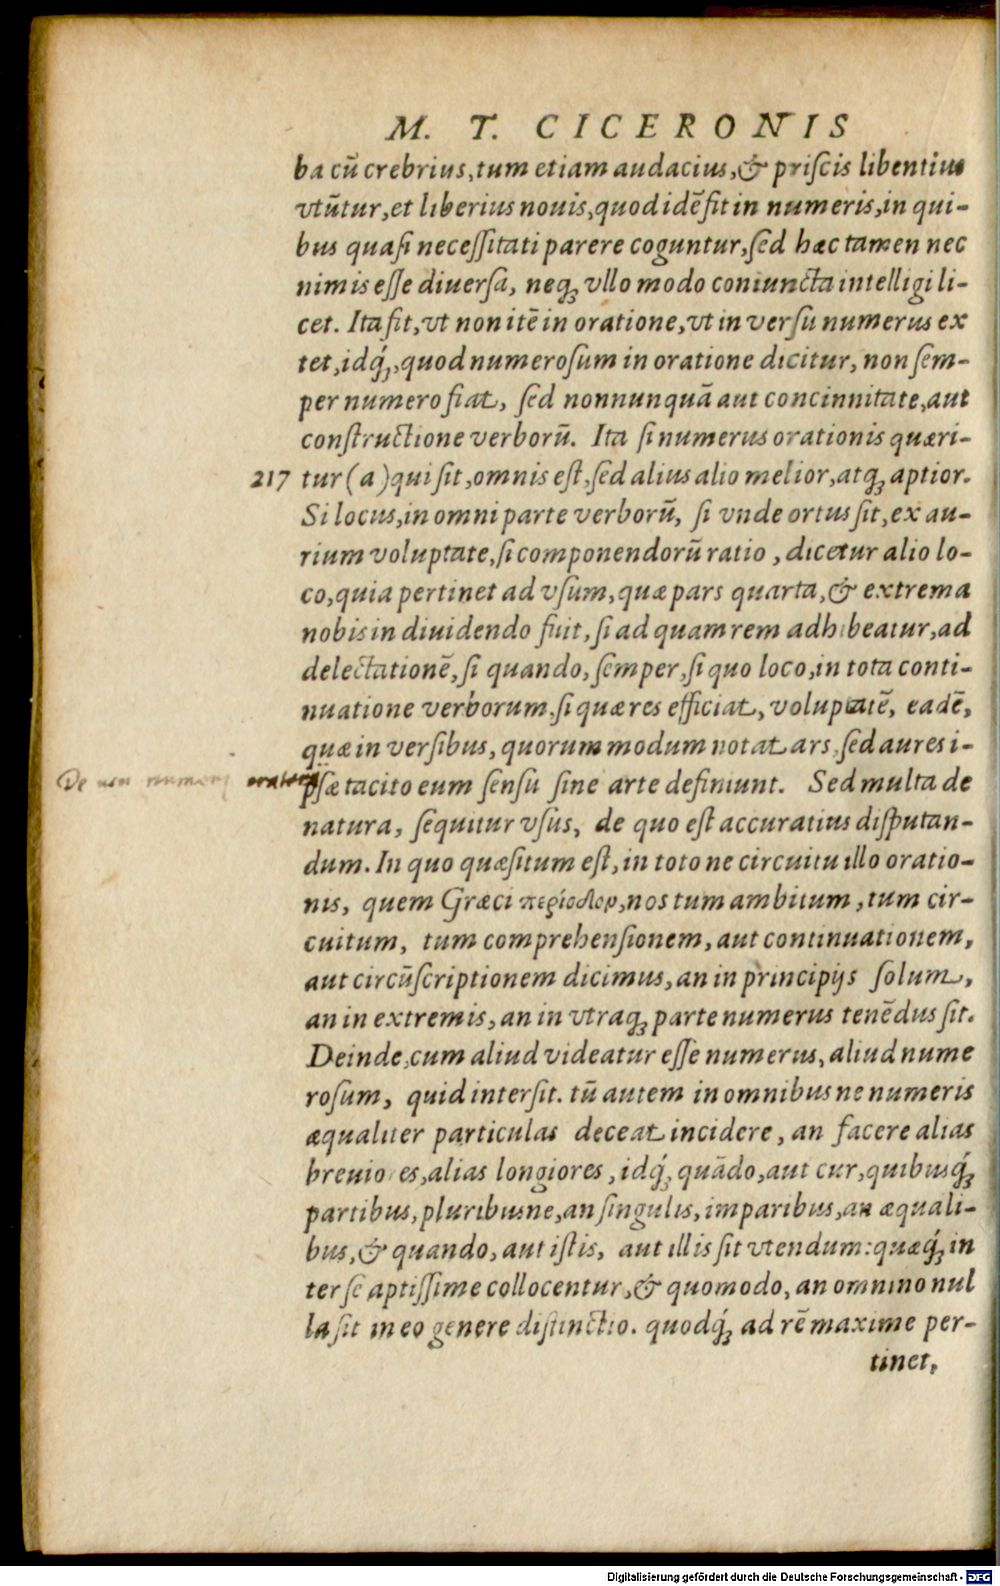 M. T. CICERONIS
ba cũ crebrius, tum etiam audacius, & priſcis libentius
vtũtur, et liberius nouis, quod idẽ fit in numeris, in qui-
bus quaſi neceſſitati parere coguntur, ſed hæc tamen nec
nimis eſſe diuerſa, neq; vllo modo coniuncta intelligi li-
cet. Ita fit, vt non itẽ in oratione, vt in verſu numerus ex
tet, idq́;, quod numeroſum in oratione dicitur, non ſem-
per numero fiat, ſed nonnunquã aut concinnitate, aut
conſtructione verborũ. Ita ſi numerus orationis quæri-
217 tur (a) qui ſit, omnis eſt, ſed alius alio melior, atq; aptior.
Si locus, in omni parte verborũ, ſi vnde ortus ſit, ex au-
rium voluptate, ſi componendorũ ratio, dicetur alio lo-
co, quia pertinet ad vſum, quæ pars quarta, & extrema
nobis in diuidendo fuit, ſi ad quam rem adhibeatur, ad
delectationẽ, ſi quando, ſemper, ſi quo loco, in tota conti-
nuatione verborum, ſi quæ res efficiat, voluptatẽ, eadẽ,
quæ in verſibus, quorum modum notat ars, ſed aures i-
De numeri
pſæ tacito eum ſenſu ſine arte definiunt. Sed multa de
natura, ſequitur vſus, de quo eſt accuratius diſputan-
dum. In quo quæſitum eſt, in toto ne circuitu illo oratio-
nis, quem Græci περίοδον, nos tum ambitum, tum cir-
cuitum, tum comprehenſionem, aut continuationem,
aut circũſcriptionem dicimus, an in principijs ſolum,
an in extremis, an in vtraq; parte numerus tenẽdus ſit.
Deinde, cum aliud videatur eſſe numerus, aliud nume
roſum, quid interſit. tũ autem in omnibus ne numeris
æqualiter particulas deceat incidere, an facere alias
breuiores, alias longiores, idq́; quãdo, aut cur, quibusq́;
partibus, pluribusne, an ſingulis, imparibus, an æquali-
bus, & quando, aut iſtis, aut illis ſit vtendum: quæq́; in
ter ſe aptiſſime collocentur, & quomodo, an omnino nul
la ſit in eo genere diſtinctio. quodq́; ad rẽ maxime per-
tinet,
Digitalisierung gefördert durch die Deutsche Forschungsgemeinschaft - DFG